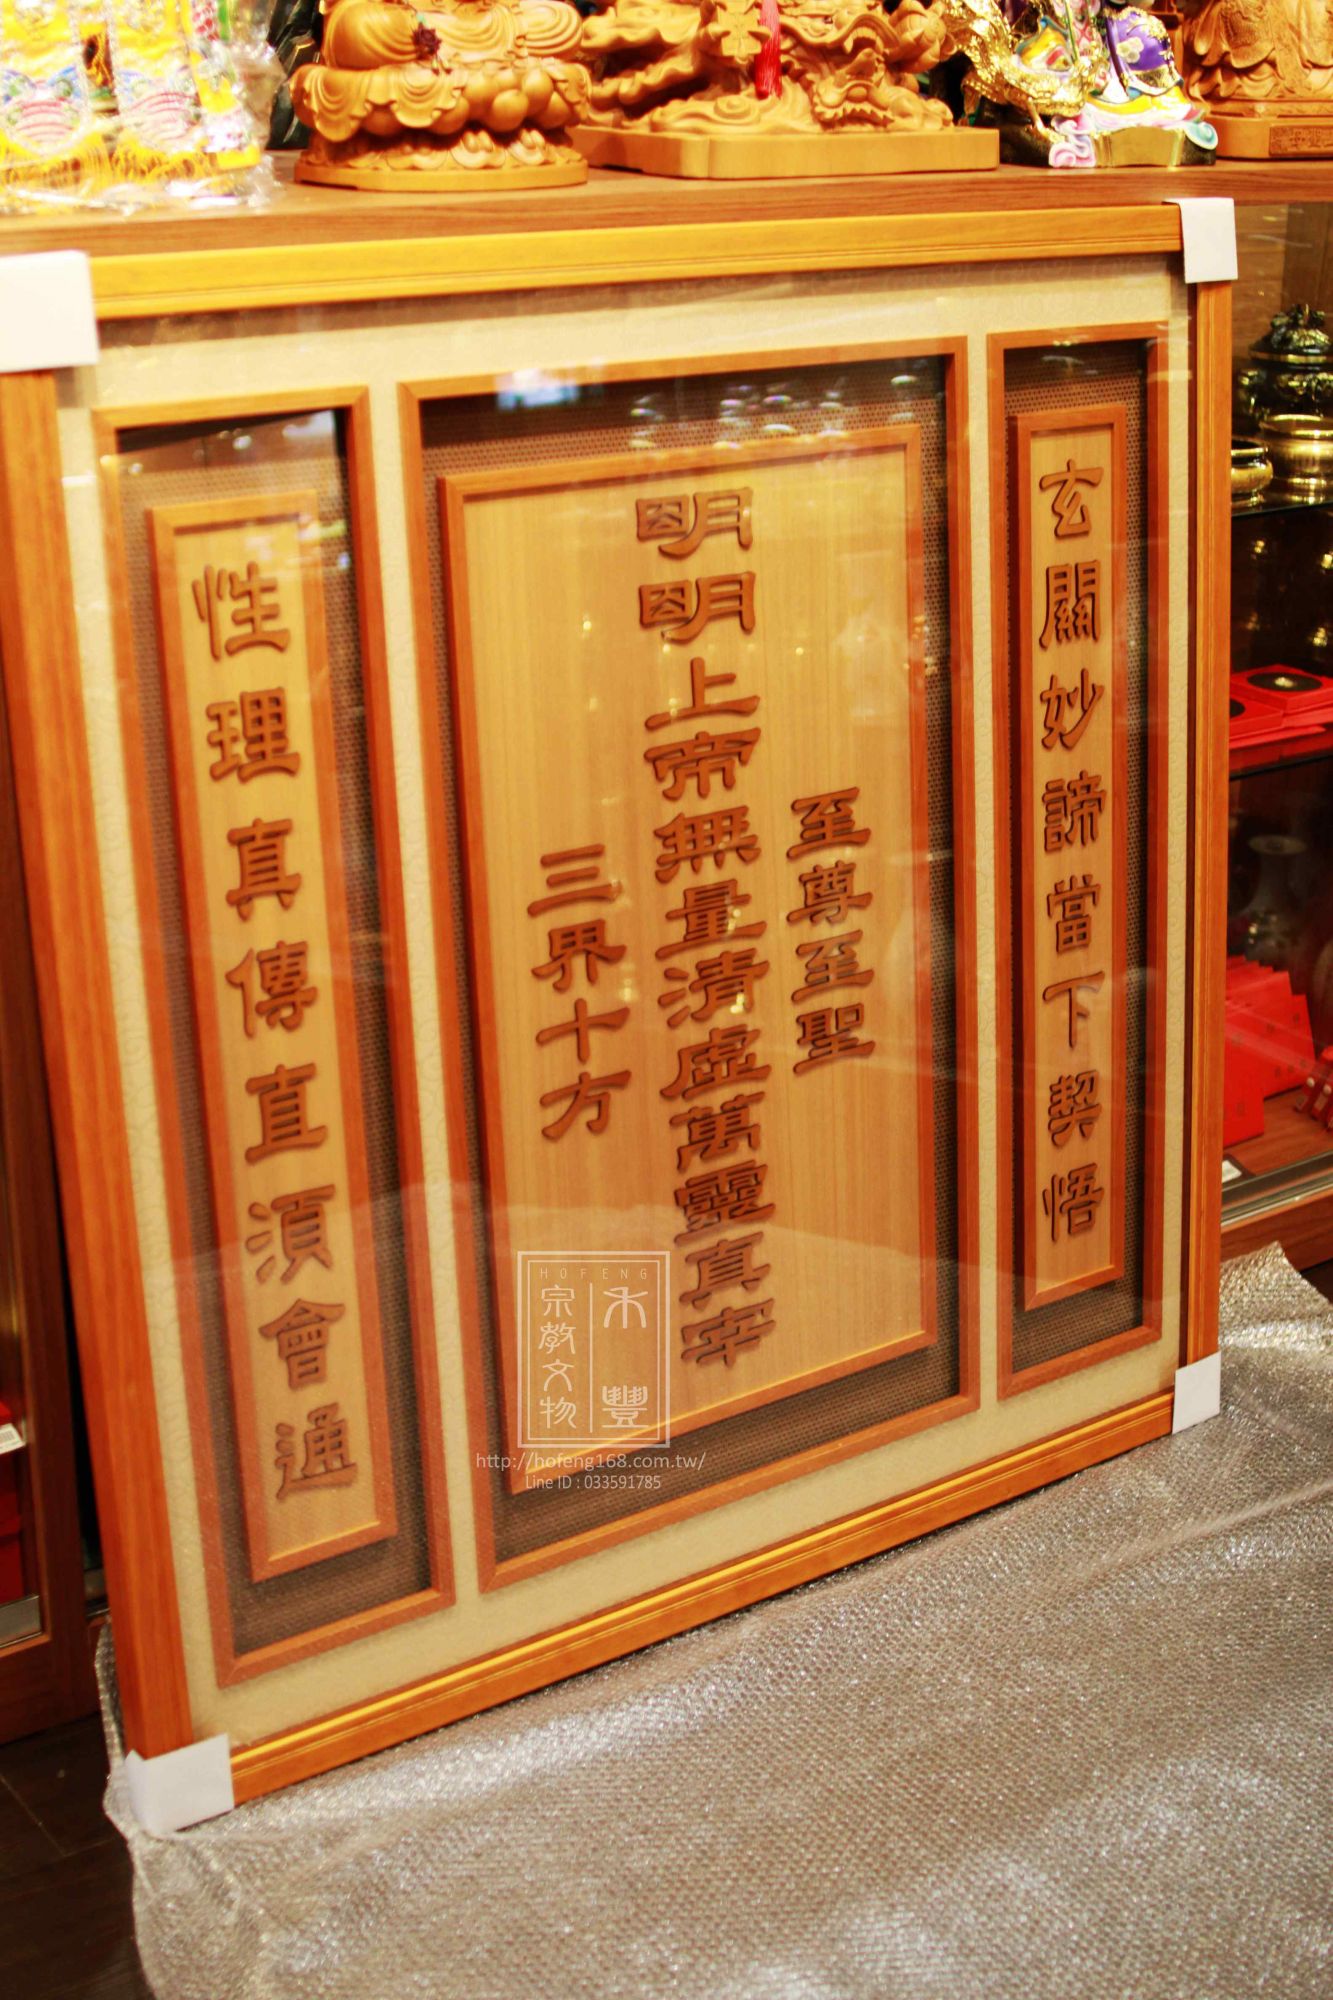 玄關妙諦當下契悟
至尊至聖
明明上帝無量清虛萬靈真宰
三界十方
性理真傳直須會通
HOFENG
禾豐
宗教文物
http://hofeng168.com.tw/
Line ID : 033591785